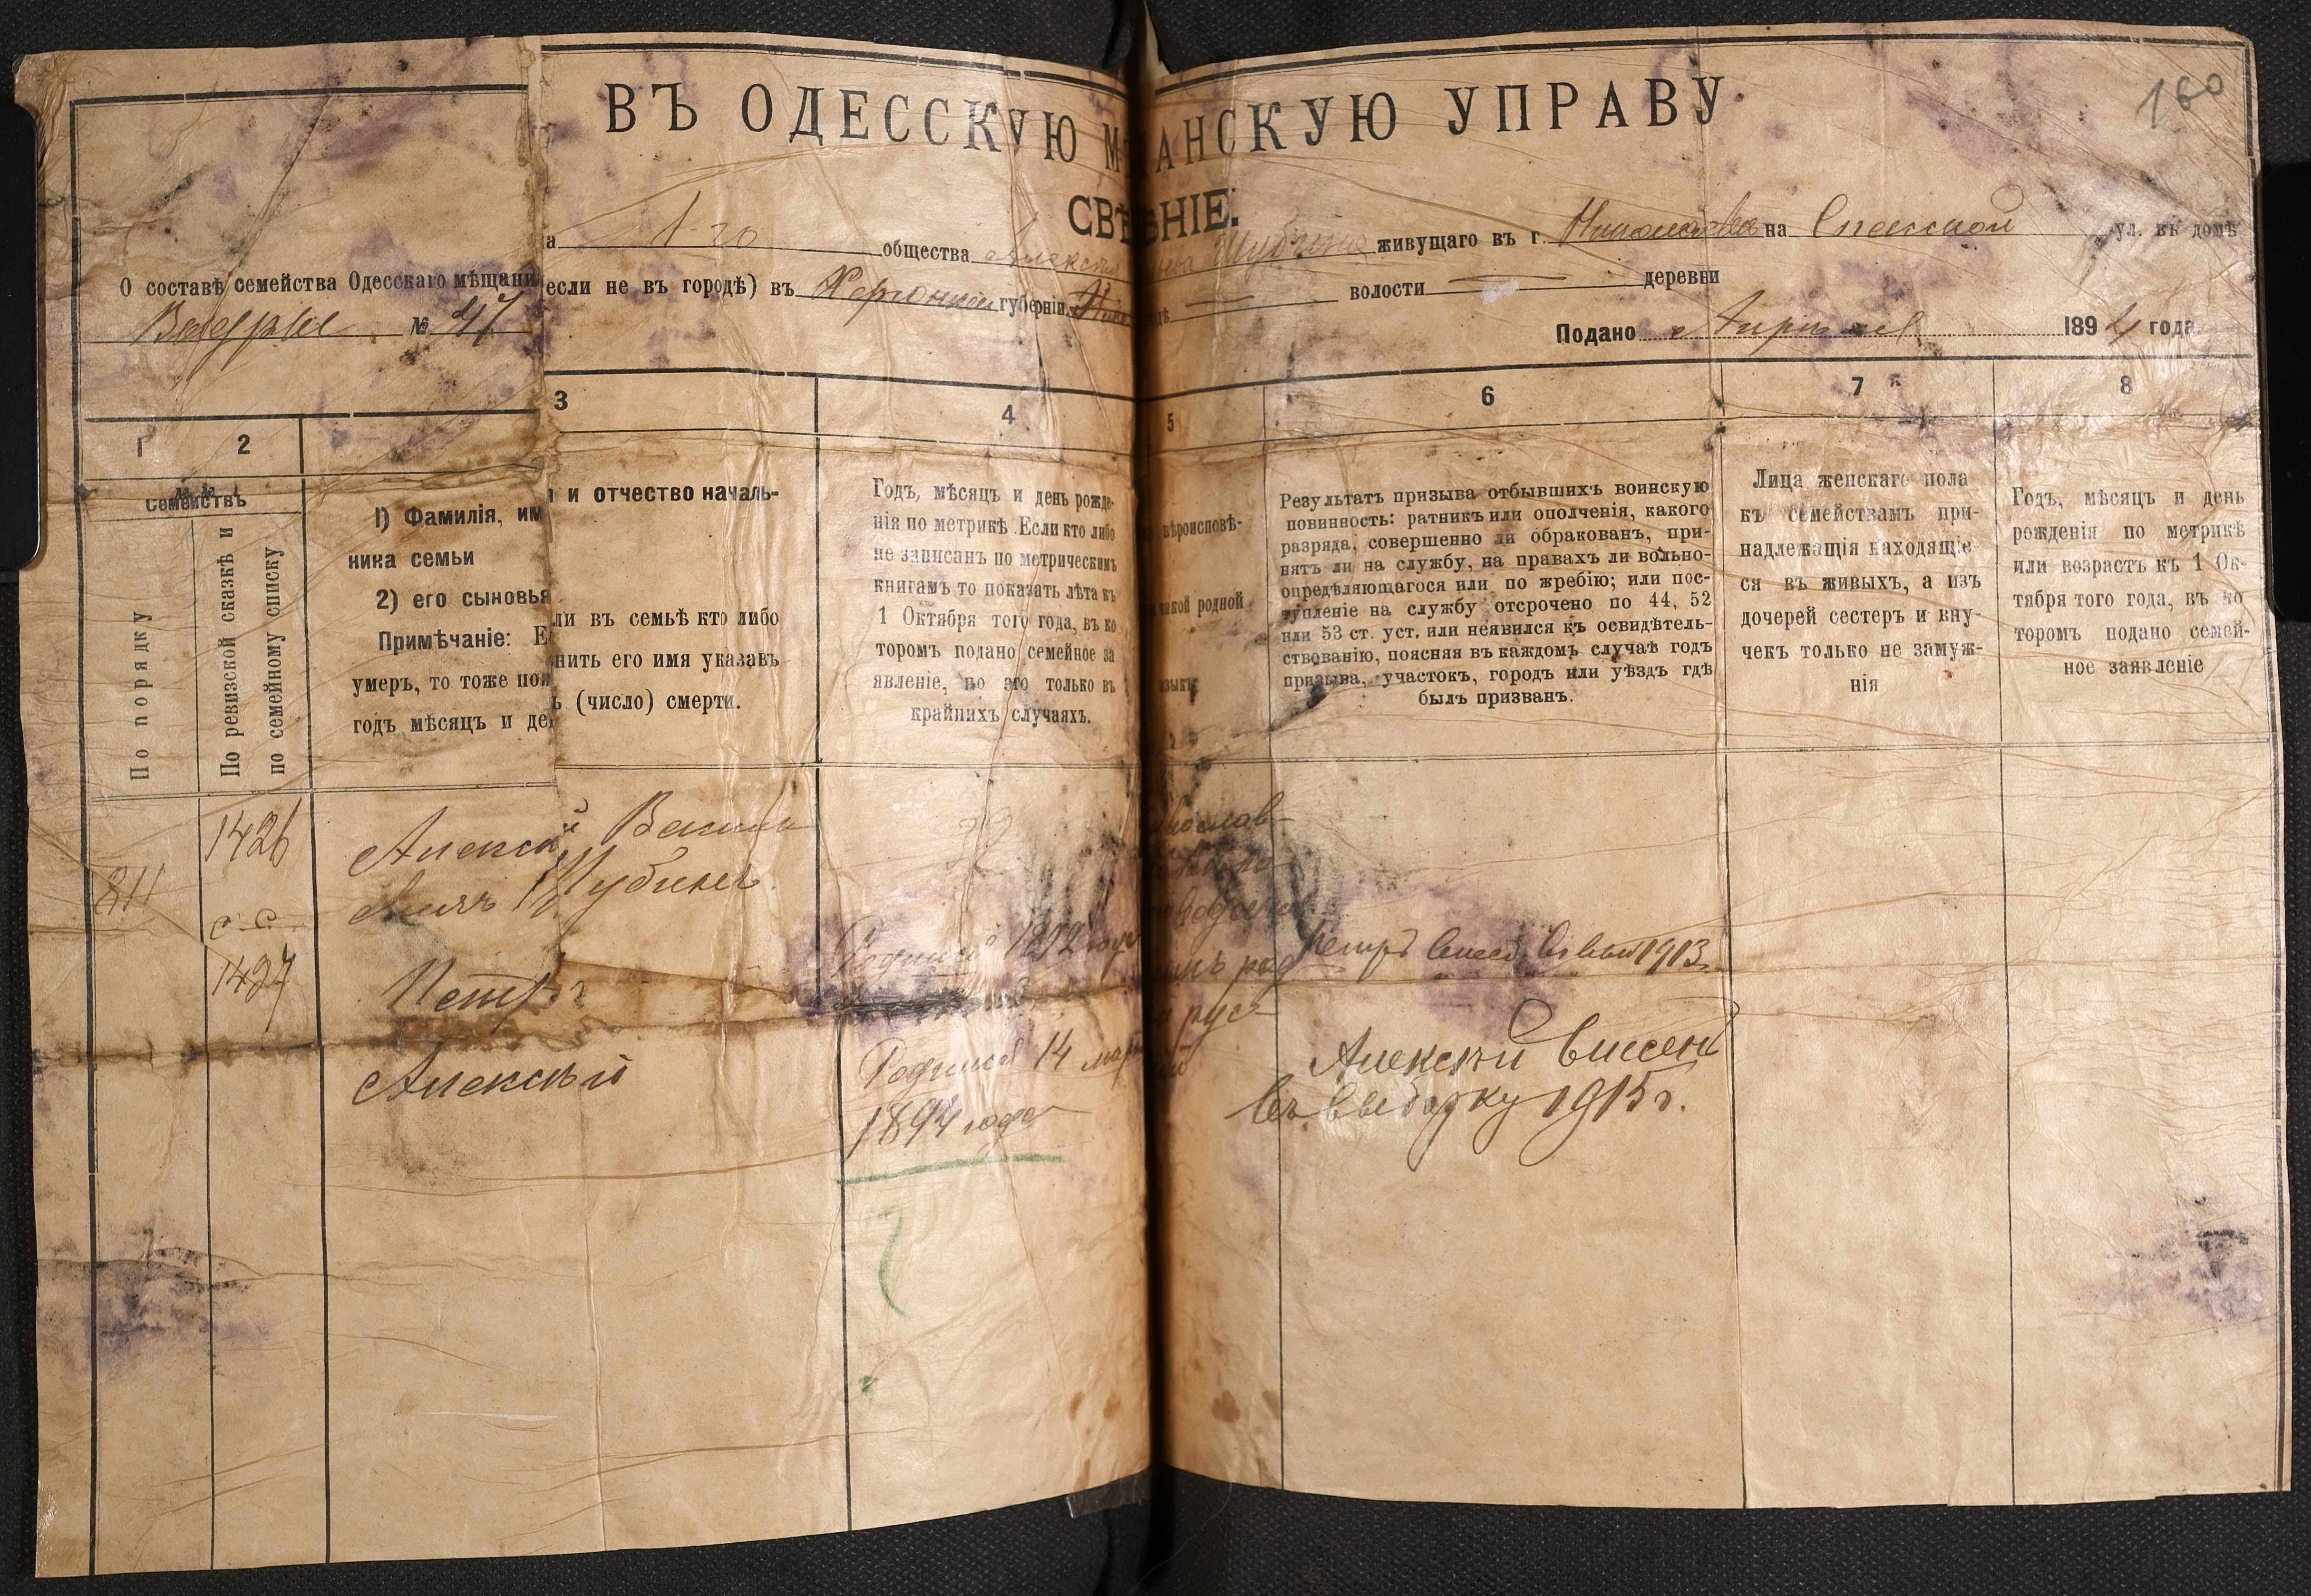 160
ВЪ ОДЕССКУЮ М АНСКУЮ УПРАВУ
СВѢ ѢНІЕ:
О составѣ семейства Одесскаго мѣщани а 1-го общества Алексѣя Шубина живущаго въ г. Николаевѣ на Спасской ул. въ домѣ
№ 47 если не въ городѣ) въ Херсонской губерніи волости деревни
Подано Апрѣля 1894 года
1 2 3 4 5 6 7 8
№№
Семействъ
По порядку
По ревизской сказкѣ и
по семейному списку
1) Фамилія, им и отчество началь-
ника семьи
2) его сыновья
Примѣчаніе: Е ли въ семьѣ кто либо
умеръ, то тоже поя нить его имя указавъ
годъ мѣсяцъ и де ь (число) смерти.
Годъ, мѣсяцъ и день рожде-
нія по метрикѣ. Если кто либо
не записанъ по метрическимъ
книгамъ то показать лѣта къ
1 Октября того года, въ ко
торомъ подано семейное за
явленіе, но это только въ
крайнихъ случаяхъ.
вѣроисповѣ-
какой родной
языкъ
Результатъ призыва отбывшихъ воинскую
повинность: ратникъ или ополченія, какого
разряда, совершенно ли обракованъ, при-
нятъ ли на службу, на правахъ ли вольно-
опредѣляющагося или по жребію; или пос-
тупленіе на службу отсрочено по 44, 52
или 53 ст. уст. или неявился къ освидѣтель-
ствованію, поясняя въ каждомъ случаѣ годъ
призыва, участокъ, городъ или уѣздъ гдѣ
былъ призванъ.
Лица женскаго пола
къ семействамъ при-
надлежащія находящіе-
ся въ живыхъ, а изъ
дочерей сестеръ и вну-
чекъ только не замуж-
нія
Годъ, мѣсяцъ и день
рожденія по метрикѣ
или возрастъ къ 1 Ок-
тября того года, въ ко
торомъ подано семей-
ное заявленіе
1426
Алексѣй Василь
811
евичъ Шубинъ
с. с.
1427
Петръ
Родился 1892 года
род
Петръ внесенъ въ выб 1913
рус
Алексѣй
Родился 14 мар
1894 года
Алексѣй внесенъ
въ выборку 1915 г.
?